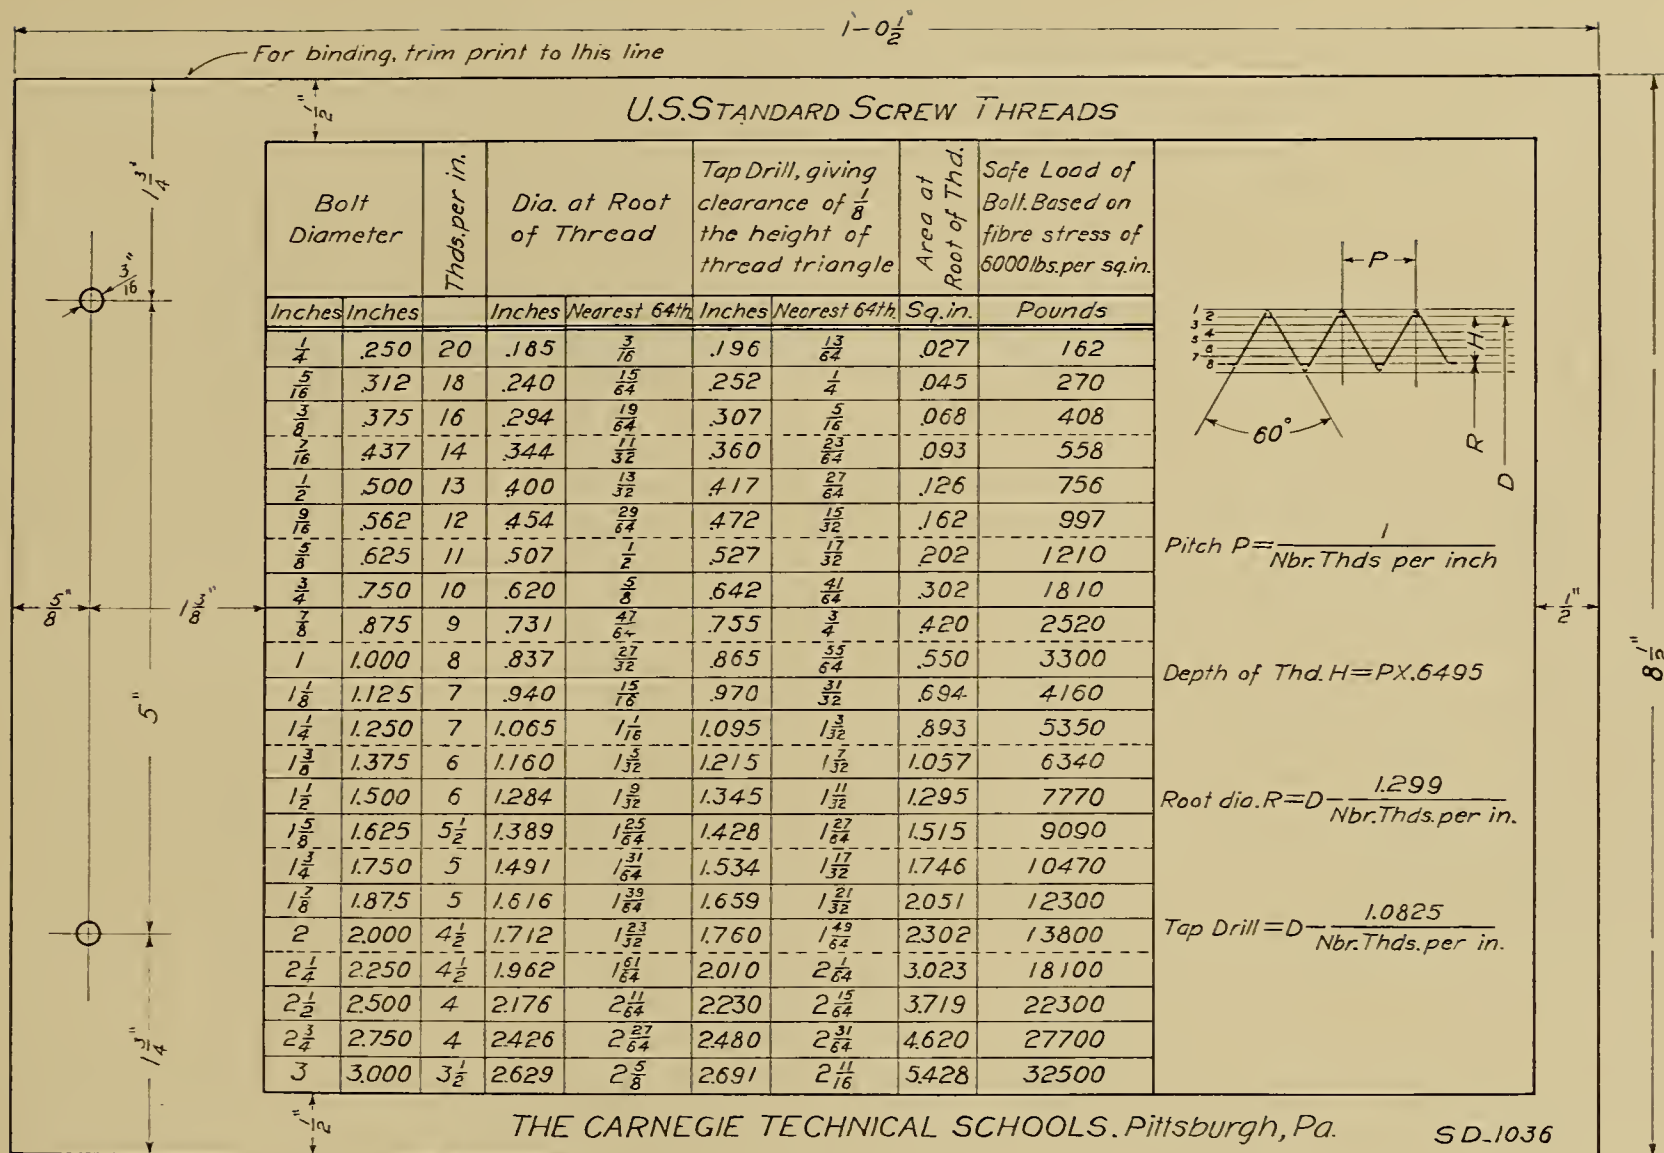 1'-0 1/2"
For binding, trim print to this line
1/2"
U.S. STANDARD SCREW THREADS
1 3/4"
3/16"
5"
1 3/4"
5/8"
1 3/8"
Bolt Diameter | Thds. per in. | Dia. at Root of Thread | Tap Drill, giving clearance of 1/8 the height of thread triangle | Area at Root of Thd. | Safe Load of Bolt. Based on fibre stress of 6000 lbs. per sq. in.
Inches | Inches | | Inches | Nearest 64th | Inches | Nearest 64th. | Sq. in. | Pounds
1/4 | .250 | 20 | .185 | 3/16 | .196 | 13/64 | .027 | 162
5/16 | .312 | 18 | .240 | 15/64 | .252 | 1/4 | .045 | 270
3/8 | .375 | 16 | .294 | 19/64 | .307 | 5/16 | .068 | 408
7/16 | .437 | 14 | .344 | 11/32 | .360 | 23/64 | .093 | 558
1/2 | .500 | 13 | .400 | 13/32 | .417 | 27/64 | .126 | 756
9/16 | .562 | 12 | .454 | 29/64 | .472 | 15/32 | .162 | 997
5/8 | .625 | 11 | .507 | 1/2 | .527 | 17/32 | .202 | 1210
3/4 | .750 | 10 | .620 | 5/8 | .642 | 41/64 | .302 | 1810
7/8 | .875 | 9 | .731 | 47/64 | .755 | 3/4 | .420 | 2520
1 | 1.000 | 8 | .837 | 27/32 | .865 | 55/64 | .550 | 3300
1 1/8 | 1.125 | 7 | .940 | 15/16 | .970 | 31/32 | .694 | 4160
1 1/4 | 1.250 | 7 | 1.065 | 1 1/16 | 1.095 | 1 3/32 | .893 | 5350
1 3/8 | 1.375 | 6 | 1.160 | 1 5/32 | 1.215 | 1 7/32 | 1.057 | 6340
1 1/2 | 1.500 | 6 | 1.284 | 1 9/32 | 1.345 | 1 11/32 | 1.295 | 7770
1 5/8 | 1.625 | 5 1/2 | 1.389 | 1 25/64 | 1.428 | 1 27/64 | 1.515 | 9090
1 3/4 | 1.750 | 5 | 1.491 | 1 31/64 | 1.534 | 1 17/32 | 1.746 | 10470
1 7/8 | 1.875 | 5 | 1.616 | 1 39/64 | 1.659 | 1 21/32 | 2.051 | 12300
2 | 2.000 | 4 1/2 | 1.712 | 1 23/32 | 1.760 | 1 49/64 | 2.302 | 13800
2 1/4 | 2.250 | 4 1/2 | 1.962 | 1 61/64 | 2.010 | 2 1/64 | 3.023 | 18100
2 1/2 | 2.500 | 4 | 2.176 | 2 11/64 | 2.230 | 2 15/64 | 3.719 | 22300
2 3/4 | 2.750 | 4 | 2.426 | 2 27/64 | 2.480 | 2 31/64 | 4.620 | 27700
3 | 3.000 | 3 1/2 | 2.629 | 2 5/8 | 2.691 | 2 11/16 | 5.428 | 32500
P
1
2
3
4
5
6
7
8
H
R
D
60°
Pitch P = 1 / Nbr. Thds per inch
Depth of Thd. H = P X .6495
Root dia. R = D - 1.299 / Nbr. Thds. per in.
Tap Drill = D - 1.0825 / Nbr. Thds. per in.
1/2"
8 1/2"
1/2"
THE CARNEGIE TECHNICAL SCHOOLS. Pittsburgh, Pa.
SD-1036